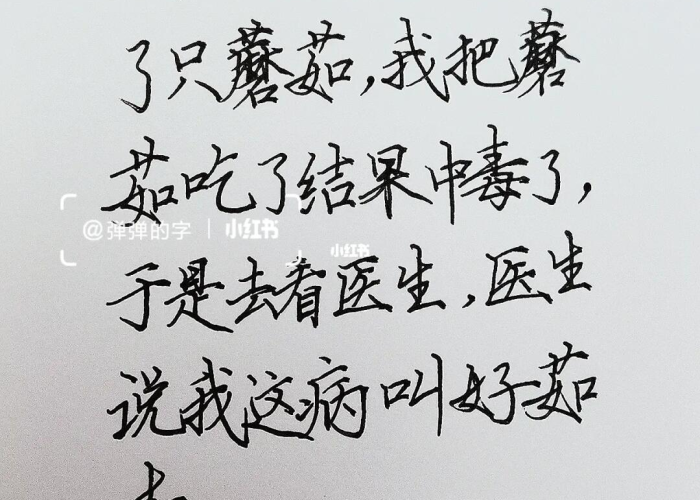 了只蘑茹,我把蘑
茹吃了结果中毒了,
@弹弹的字 | 小红书
小红书
于是去看医生,医生
说我这病叫好茹